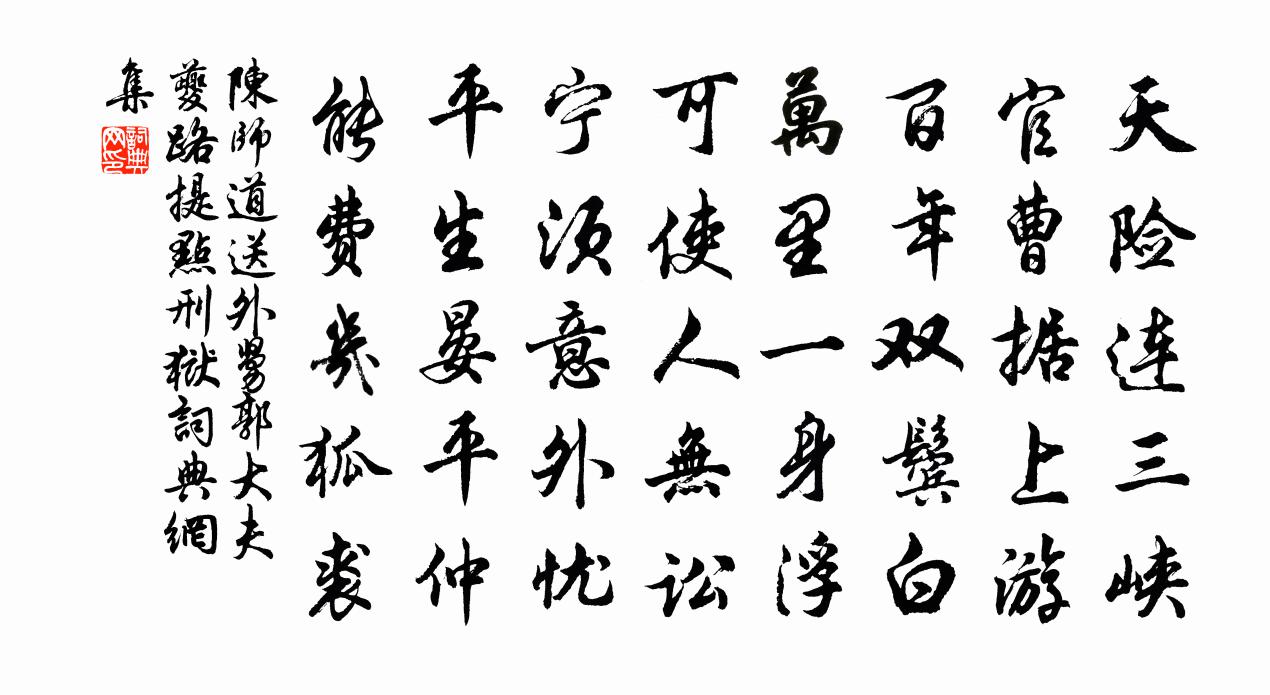 天险连三峡
官曹据上游
百年双鬓白
萬里一身浮
可使人無讼
宁须意外忧
平生晏平仲
能费幾狐裘
陳師道送外舅郭大夫
夔路提點刑獄詞典網
集
詞典网印